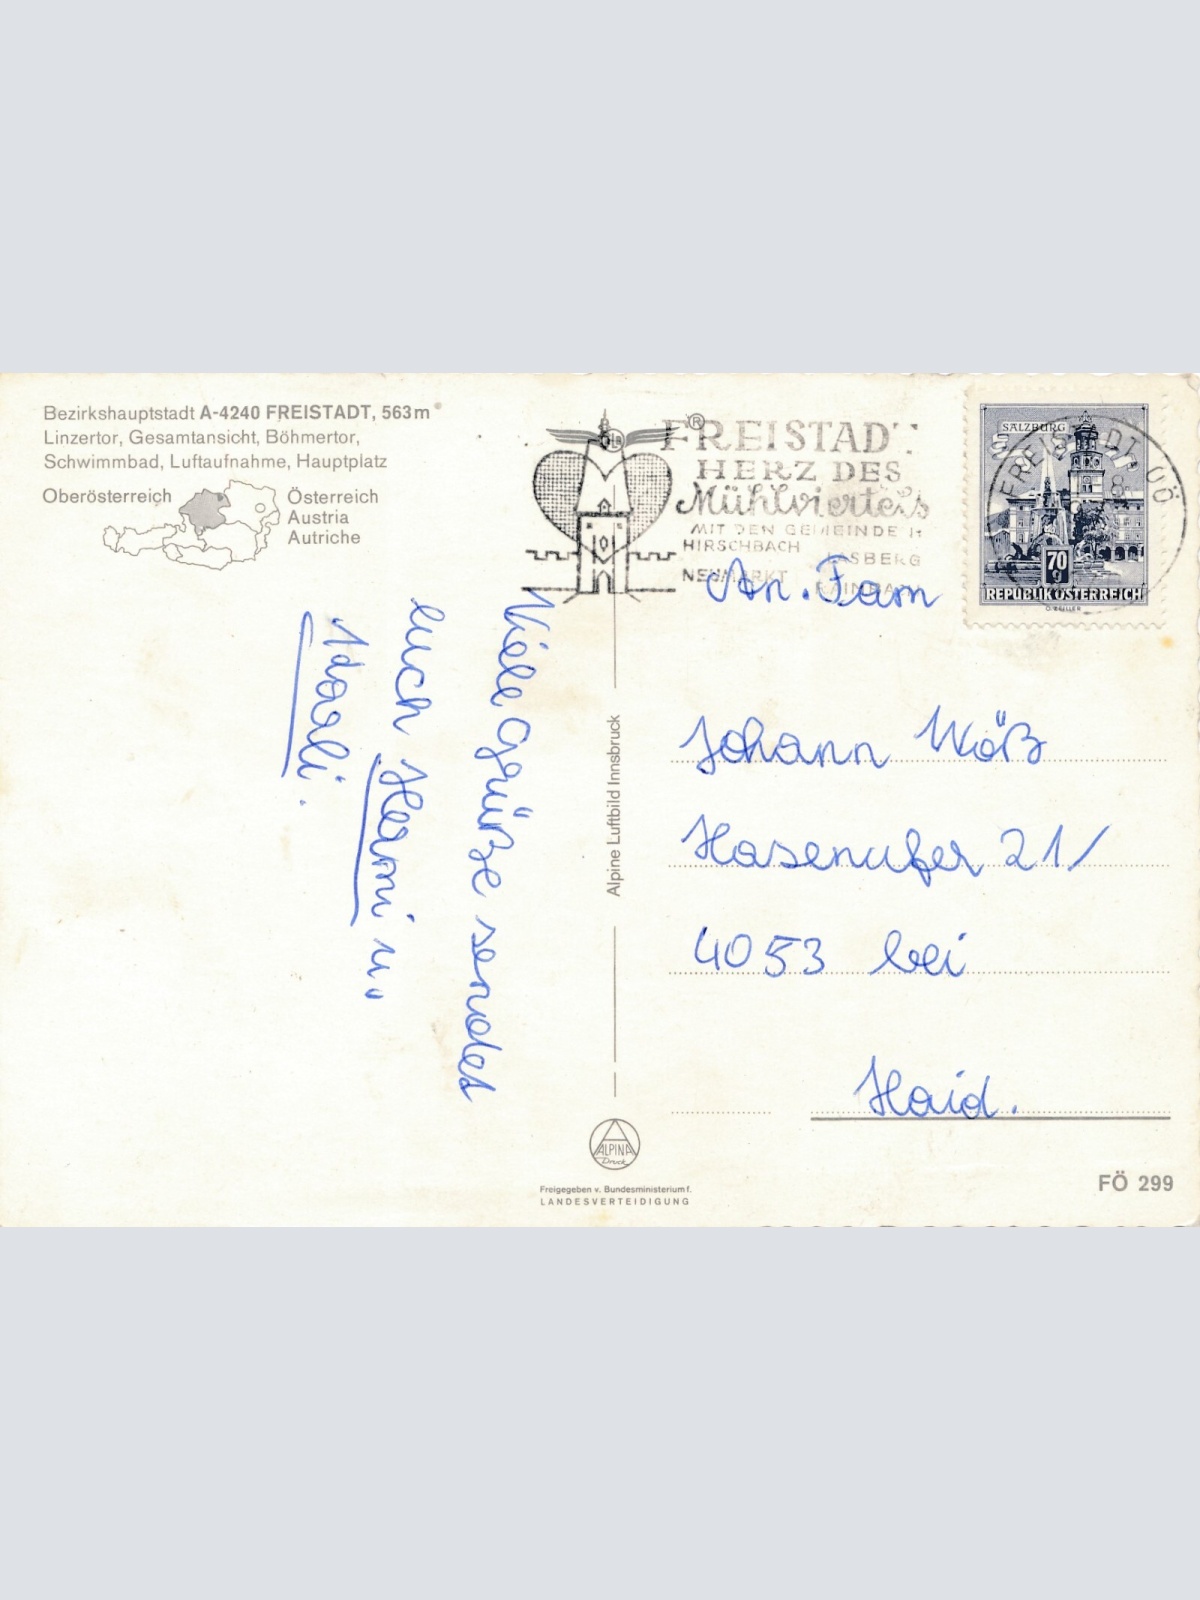 Bezirkshauptstadt A-4240 FREISTADT, 563m
Linzertor, Gesamtansicht, Böhmertor,
Schwimmbad, Luftaufnahme, Hauptplatz
Oberösterreich
Österreich
Austria
Autriche
®
FREISTADT
HERZ DES
Mühlviertels
MIT DEN GEMEINDEN
HIRSCHBACH
NEUMARKT
SALZBURG
FREISTADT OÖ
70
g
REPUBLIK ÖSTERREICH
Viele Grüße sendet
euch Hermi u.
Hali.
Alpine Luftbild Innsbruck
An. Fam
Johann Wöß
Hasenufer 21/
4053 bei
Haid.
ALPINA
Druck
Freigegeben v. Bundesministerium f.
LANDESVERTEIDIGUNG
FÖ 299